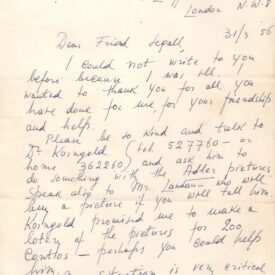 London N.W.8
31/3 56
Dear Friend Segall,
I could not write to you
before because I was ill.
wanted to thank you for all you
have done for me, for your friendship
and help.
Please be so kind and talk to
Dr Korngold (tel 527760 - or
home 362260) and ask him to
do something with the Adler pictures.
Speak also to Mr. Landau - why will
buy a picture if you will tell him.
Korngold promised me to make a
lotery of the pictures for 200
Contos - perhaps you could help
him. situation is very critical